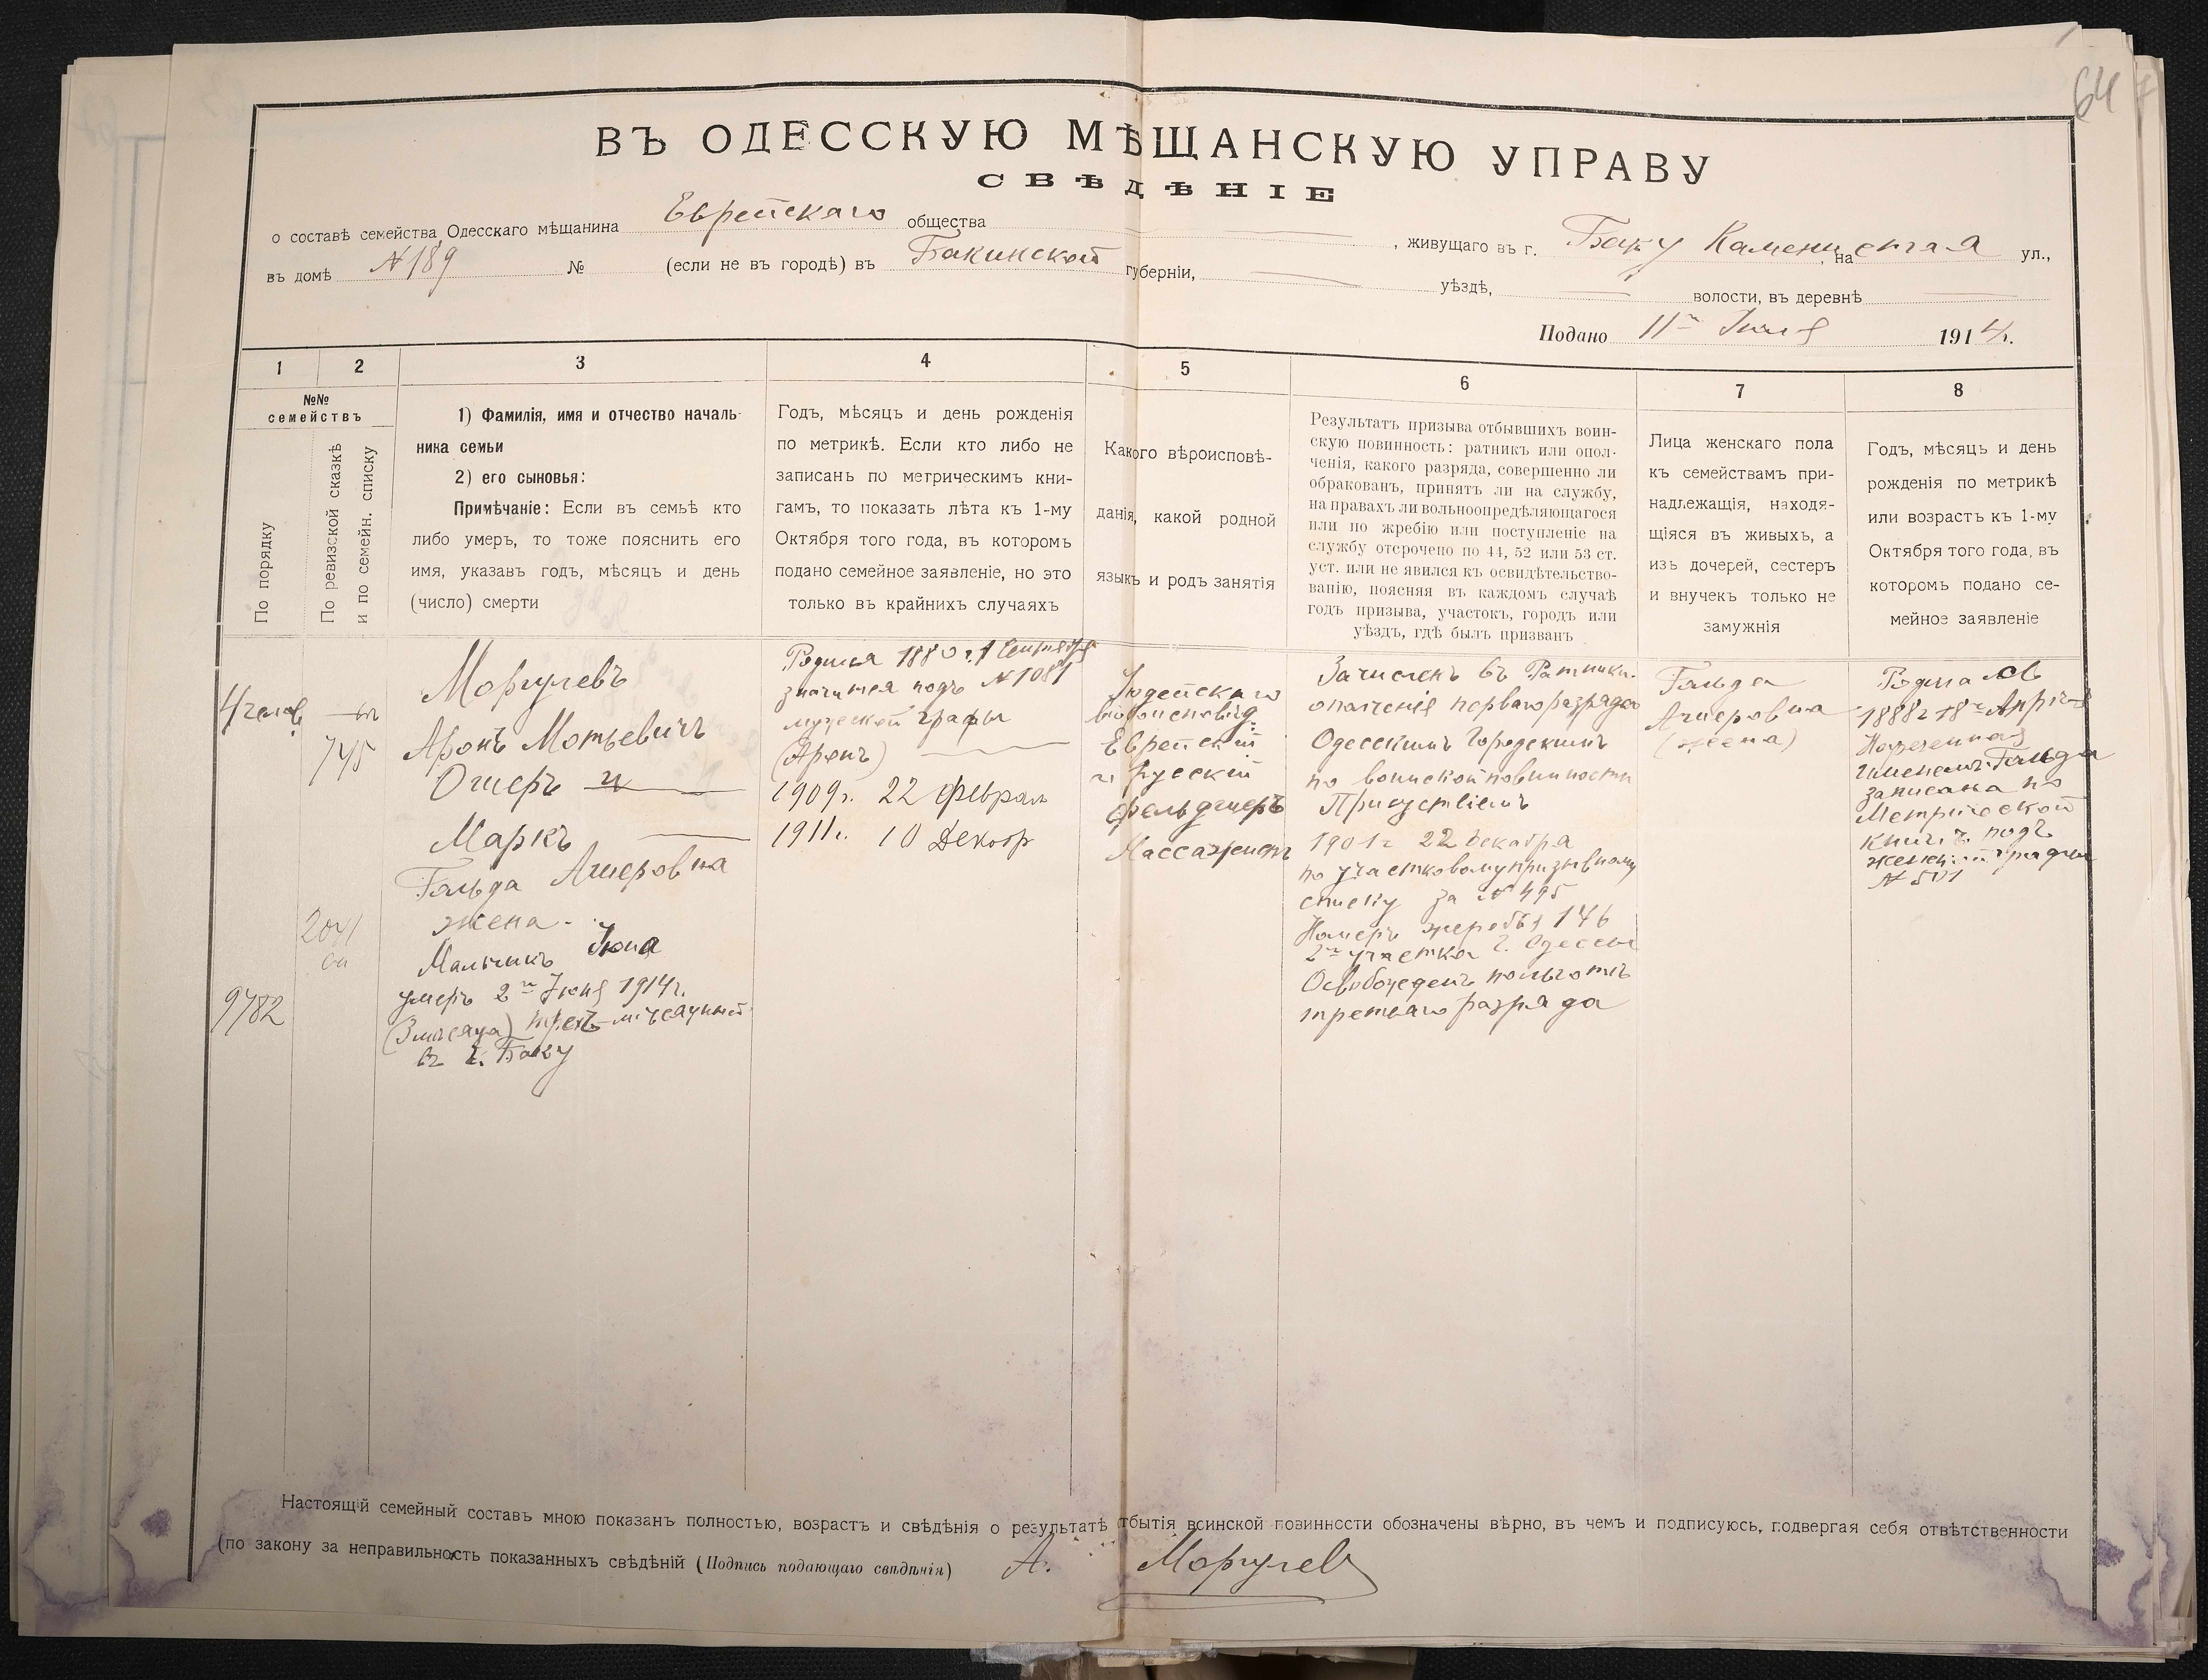 64
ВЪ ОДЕССКУЮ МѢЩАНСКУЮ УПРАВУ
СВѢДѢНІЕ
о составѣ семейства Одесскаго мѣщанина Еврейскаго общества , живущаго въ г. Баку Каменистая на ул.,
въ домѣ N189 № (если не въ городѣ) въ Бакинской губерніи, уѣздѣ, волости, въ деревнѣ
Подано 11го Іюля 1914 г.
1
2
3
4
5
6
7
8
№№
семействъ
По порядку
По ревизской сказкѣ
и по семейн. списку
1) Фамилія, имя и отчество началь-
ника семьи
2) его сыновья:
Примѣчаніе: Если въ семьѣ кто
либо умеръ, то тоже пояснить его
имя, указавъ годъ, мѣсяцъ и день
(число) смерти
Годъ, мѣсяцъ и день рожденія
по метрикѣ. Если кто либо не
записанъ по метрическимъ кни-
гамъ, то показать лѣта къ 1-му
Октября того года, въ которомъ
подано семейное заявленіе, но это
только въ крайнихъ случаяхъ
Какого вѣроисповѣ-
данія, какой родной
языкъ и родъ занятія
Результатъ призыва отбывшихъ воин-
скую повинность: ратникъ или опол-
ченія, какого разряда, совершенно ли
обракованъ, принятъ ли на службу,
на правахъ ли вольноопредѣляющагося
или по жребію или поступленіе на
службу отсрочено по 44, 52 или 53 ст.
уст. или не явился къ освидѣтельство-
ванію, поясняя въ каждомъ случаѣ
годъ призыва, участокъ, городъ или
уѣздъ, гдѣ былъ призванъ
Лица женскаго пола
къ семействамъ при-
надлежащія, находя-
щіяся въ живыхъ, а
изъ дочерей, сестеръ
и внучекъ только не
замужнія
Годъ, мѣсяцъ и день
рожденія по метрикѣ
или возрастъ къ 1-му
Октября того года, въ
которомъ подано се-
мейное заявленіе
745
2041
9782
Моргулевъ
Аронъ Мотьевичъ
Ошеръ
Маркъ
Гольда Ашеровна
жена
Мальчикъ Іона
умеръ 2го Іюня 1914 г.
(3 мѣсяца) трехъ-мѣсячный
въ г. Баку
Родился 1880 г. 1 Сентября
значится подъ N1081
мужской графы
(Аронъ)
1909 г. 22 февраля
1911 г. 10 Декабр
Іудейскаго
вѣроисповѣд.
Еврейскій
и русскій
фельдшеръ
Массажистъ
Зачисленъ въ Ратники
ополченія перваго разряда
Одесскимъ Городскимъ
по воинской повинности
Присутствіемъ
1901 г 22 декабря
по участковому призывному
списку за N495
Номеръ жеребья 146
2го участка г. Одессы
Освобожденъ по льготѣ
третьяго разряда
Гольда
Ашеровна
(жена)
Родилась
1888 г 18го Апрѣля
Нареченная
именемъ Гольда
записана по
Метрической
книгѣ подъ
женской графы
N 501
Настоящій семейный составъ мною показанъ полностью, возрастъ и свѣдѣнія о результатѣ отбытія воинской повинности обозначены вѣрно, въ чемъ и подписуюсь, подвергая себя отвѣтственности
(по закону за неправильность показанныхъ свѣдѣній (Подпись подающаго свѣдѣнія) А. Моргулев